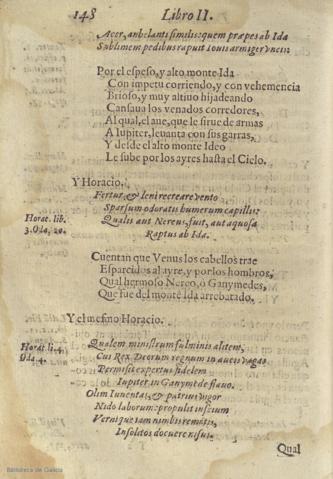 148 Libro II.
Acer, anhelanti similis: quem præpes ab Ida
Sublimem pedibus rapuit Iouis armiger vncis:
Por el espeso, y alto monte Ida
Con impetu corriendo, y con vehemencia
Brioso, y muy altiuo hijadeando
Cansaua los venados corredores,
Al qual, el aue, que le sirue de armas
A Iupiter, leuanta con sus garras,
Y desde el alto monte Ideo
Le sube por los ayres hasta el Cielo.
Y Horacio.
Fertur, & leni recreare vento
Sparsum odoratis humerum capillis:
Horat. lib.
3. Oda, 20.
Qualis aut Nereus, fuit, aut aquosa
Raptus ab Ida.
Cuentan que Venus los cabellos trae
Esparcidos al ayre, y por los hombros,
Qual hermoso Nereo, ò Ganymedes,
Que fue del monte Ida arrebatado.
Y el mesmo Horacio.
Horat li. 4.
Oda 4.
Qualem ministrum fulminis alitem,
Cui Rex Deorum regnum in aueis vagas
Permisit expertus fidelem
Iupiter in Ganymede flauo.
Olim Iuuentas, & patrius vigor
Nido laborum propulit inscium
Vernique iam nimbis remotis,
Insolitos docuere nisus.
Qual
Biblioteca de Galicia